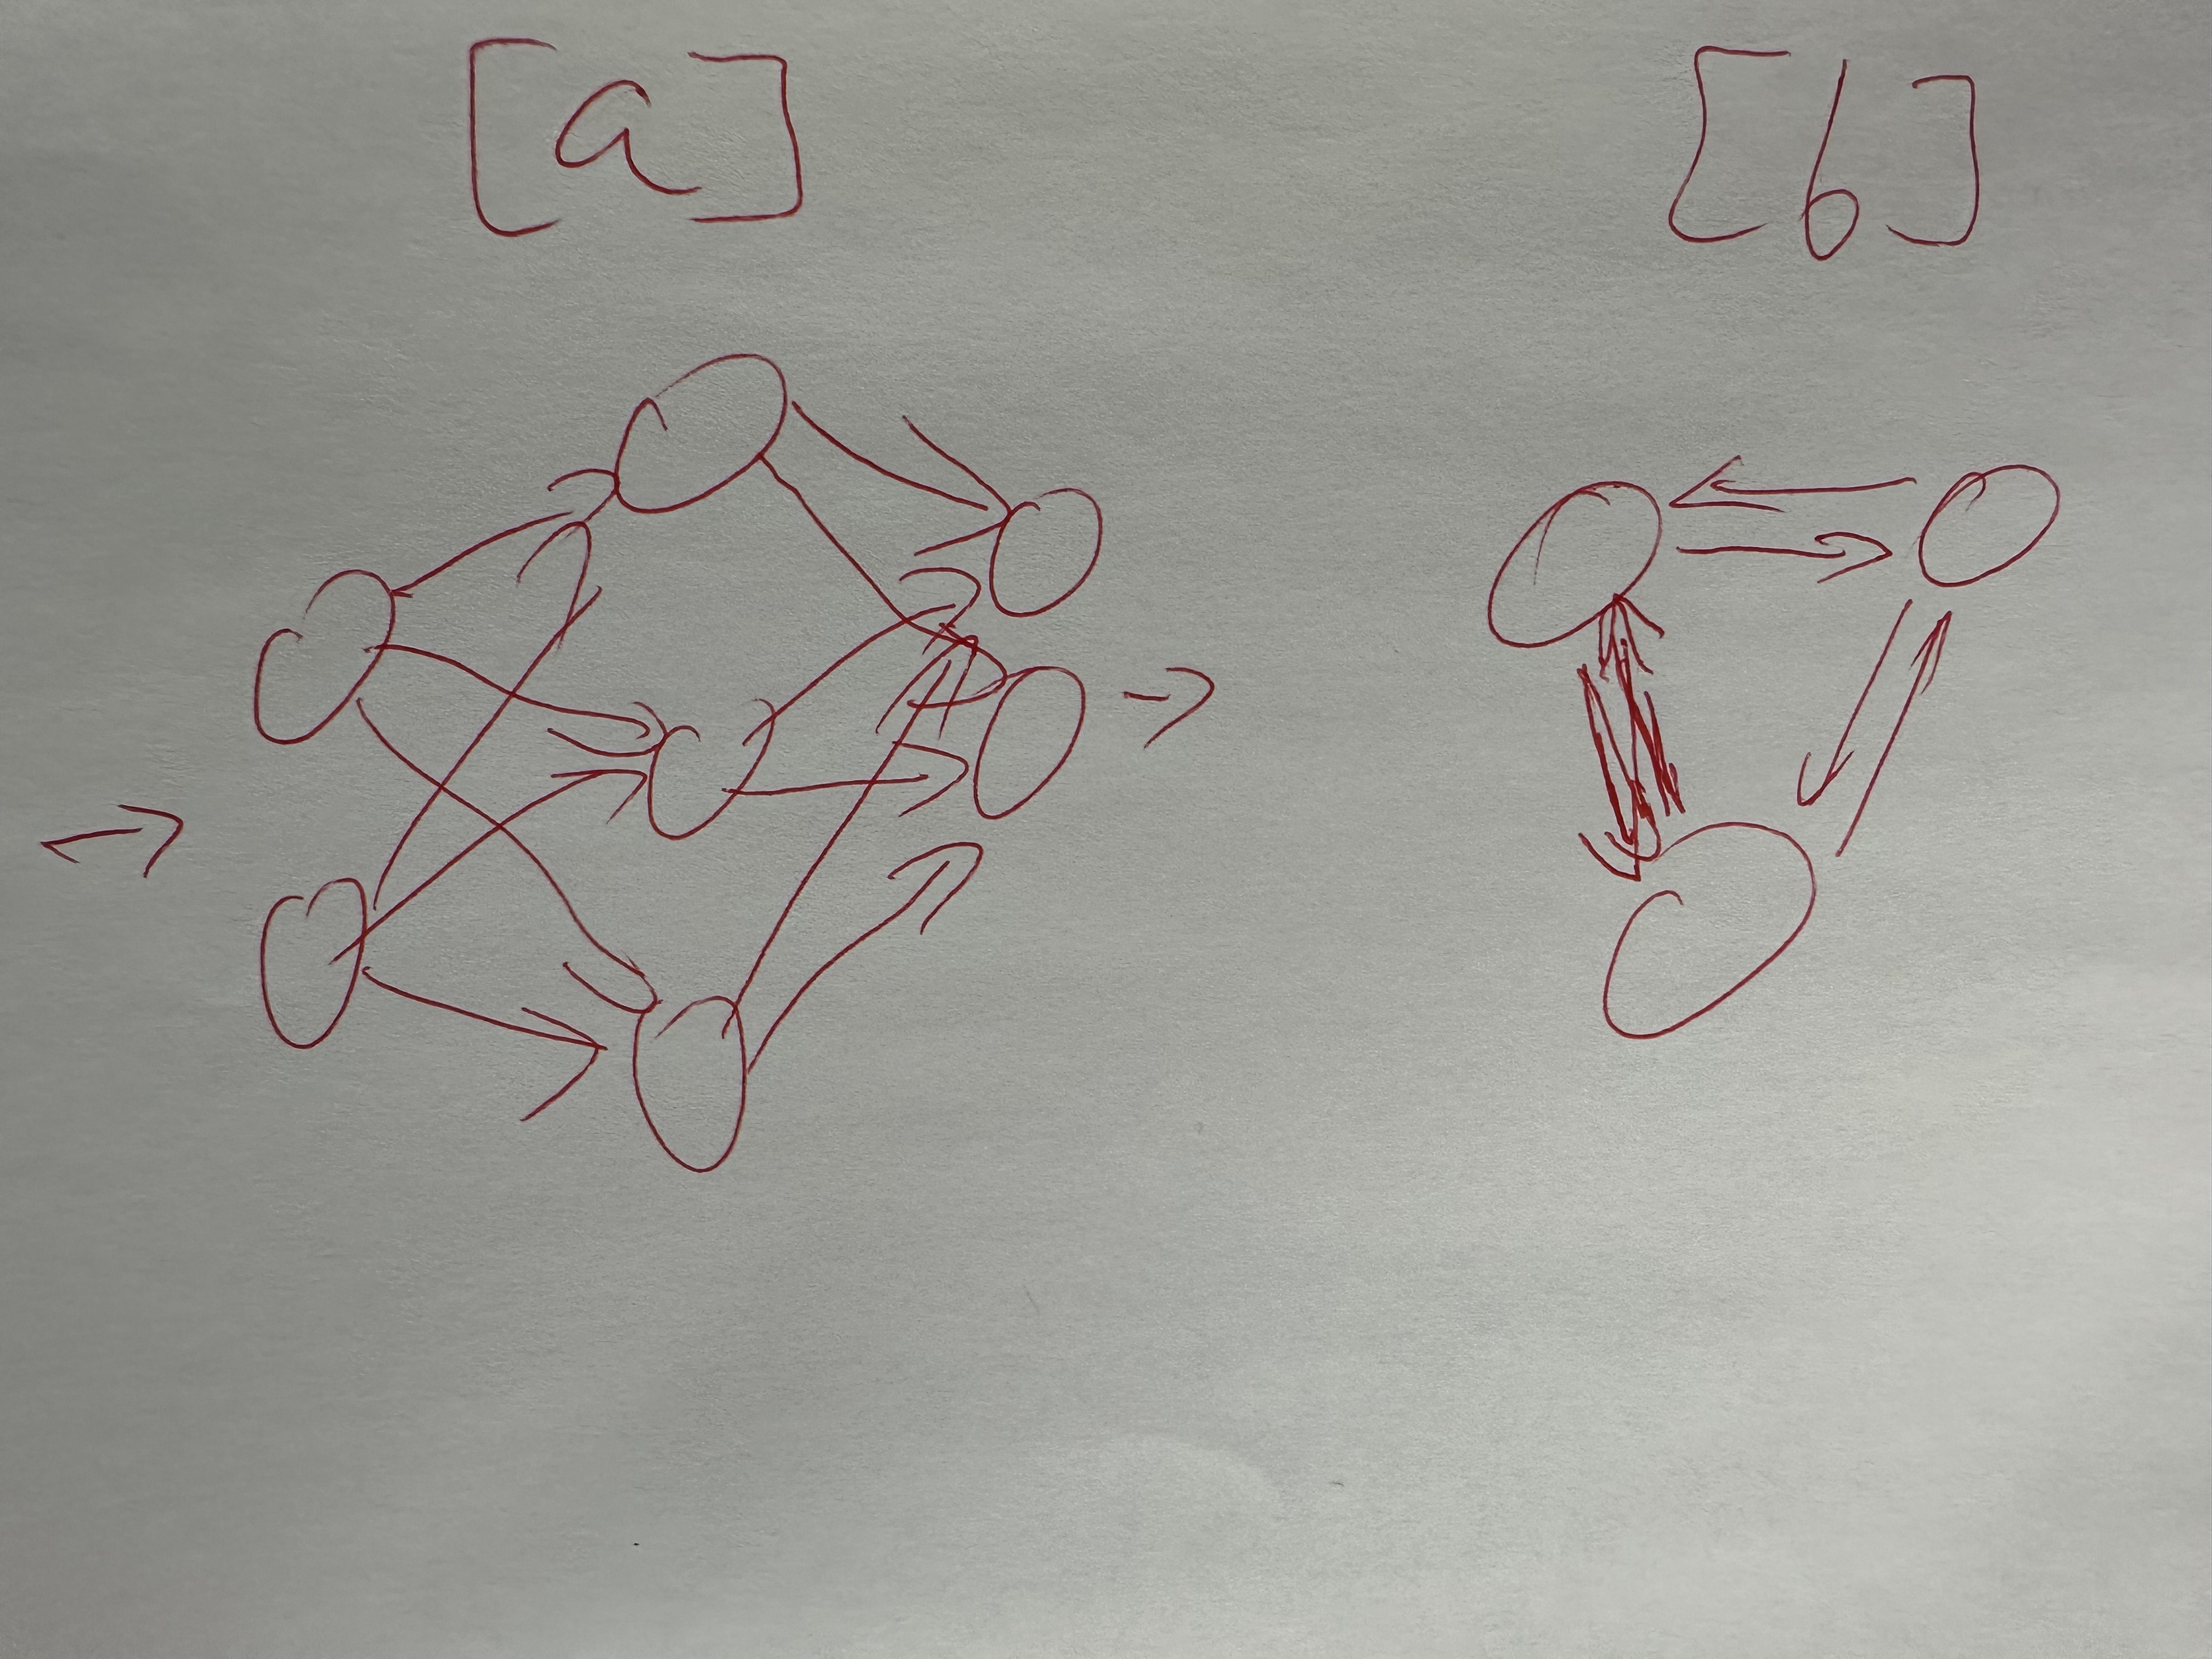 [a] [b]